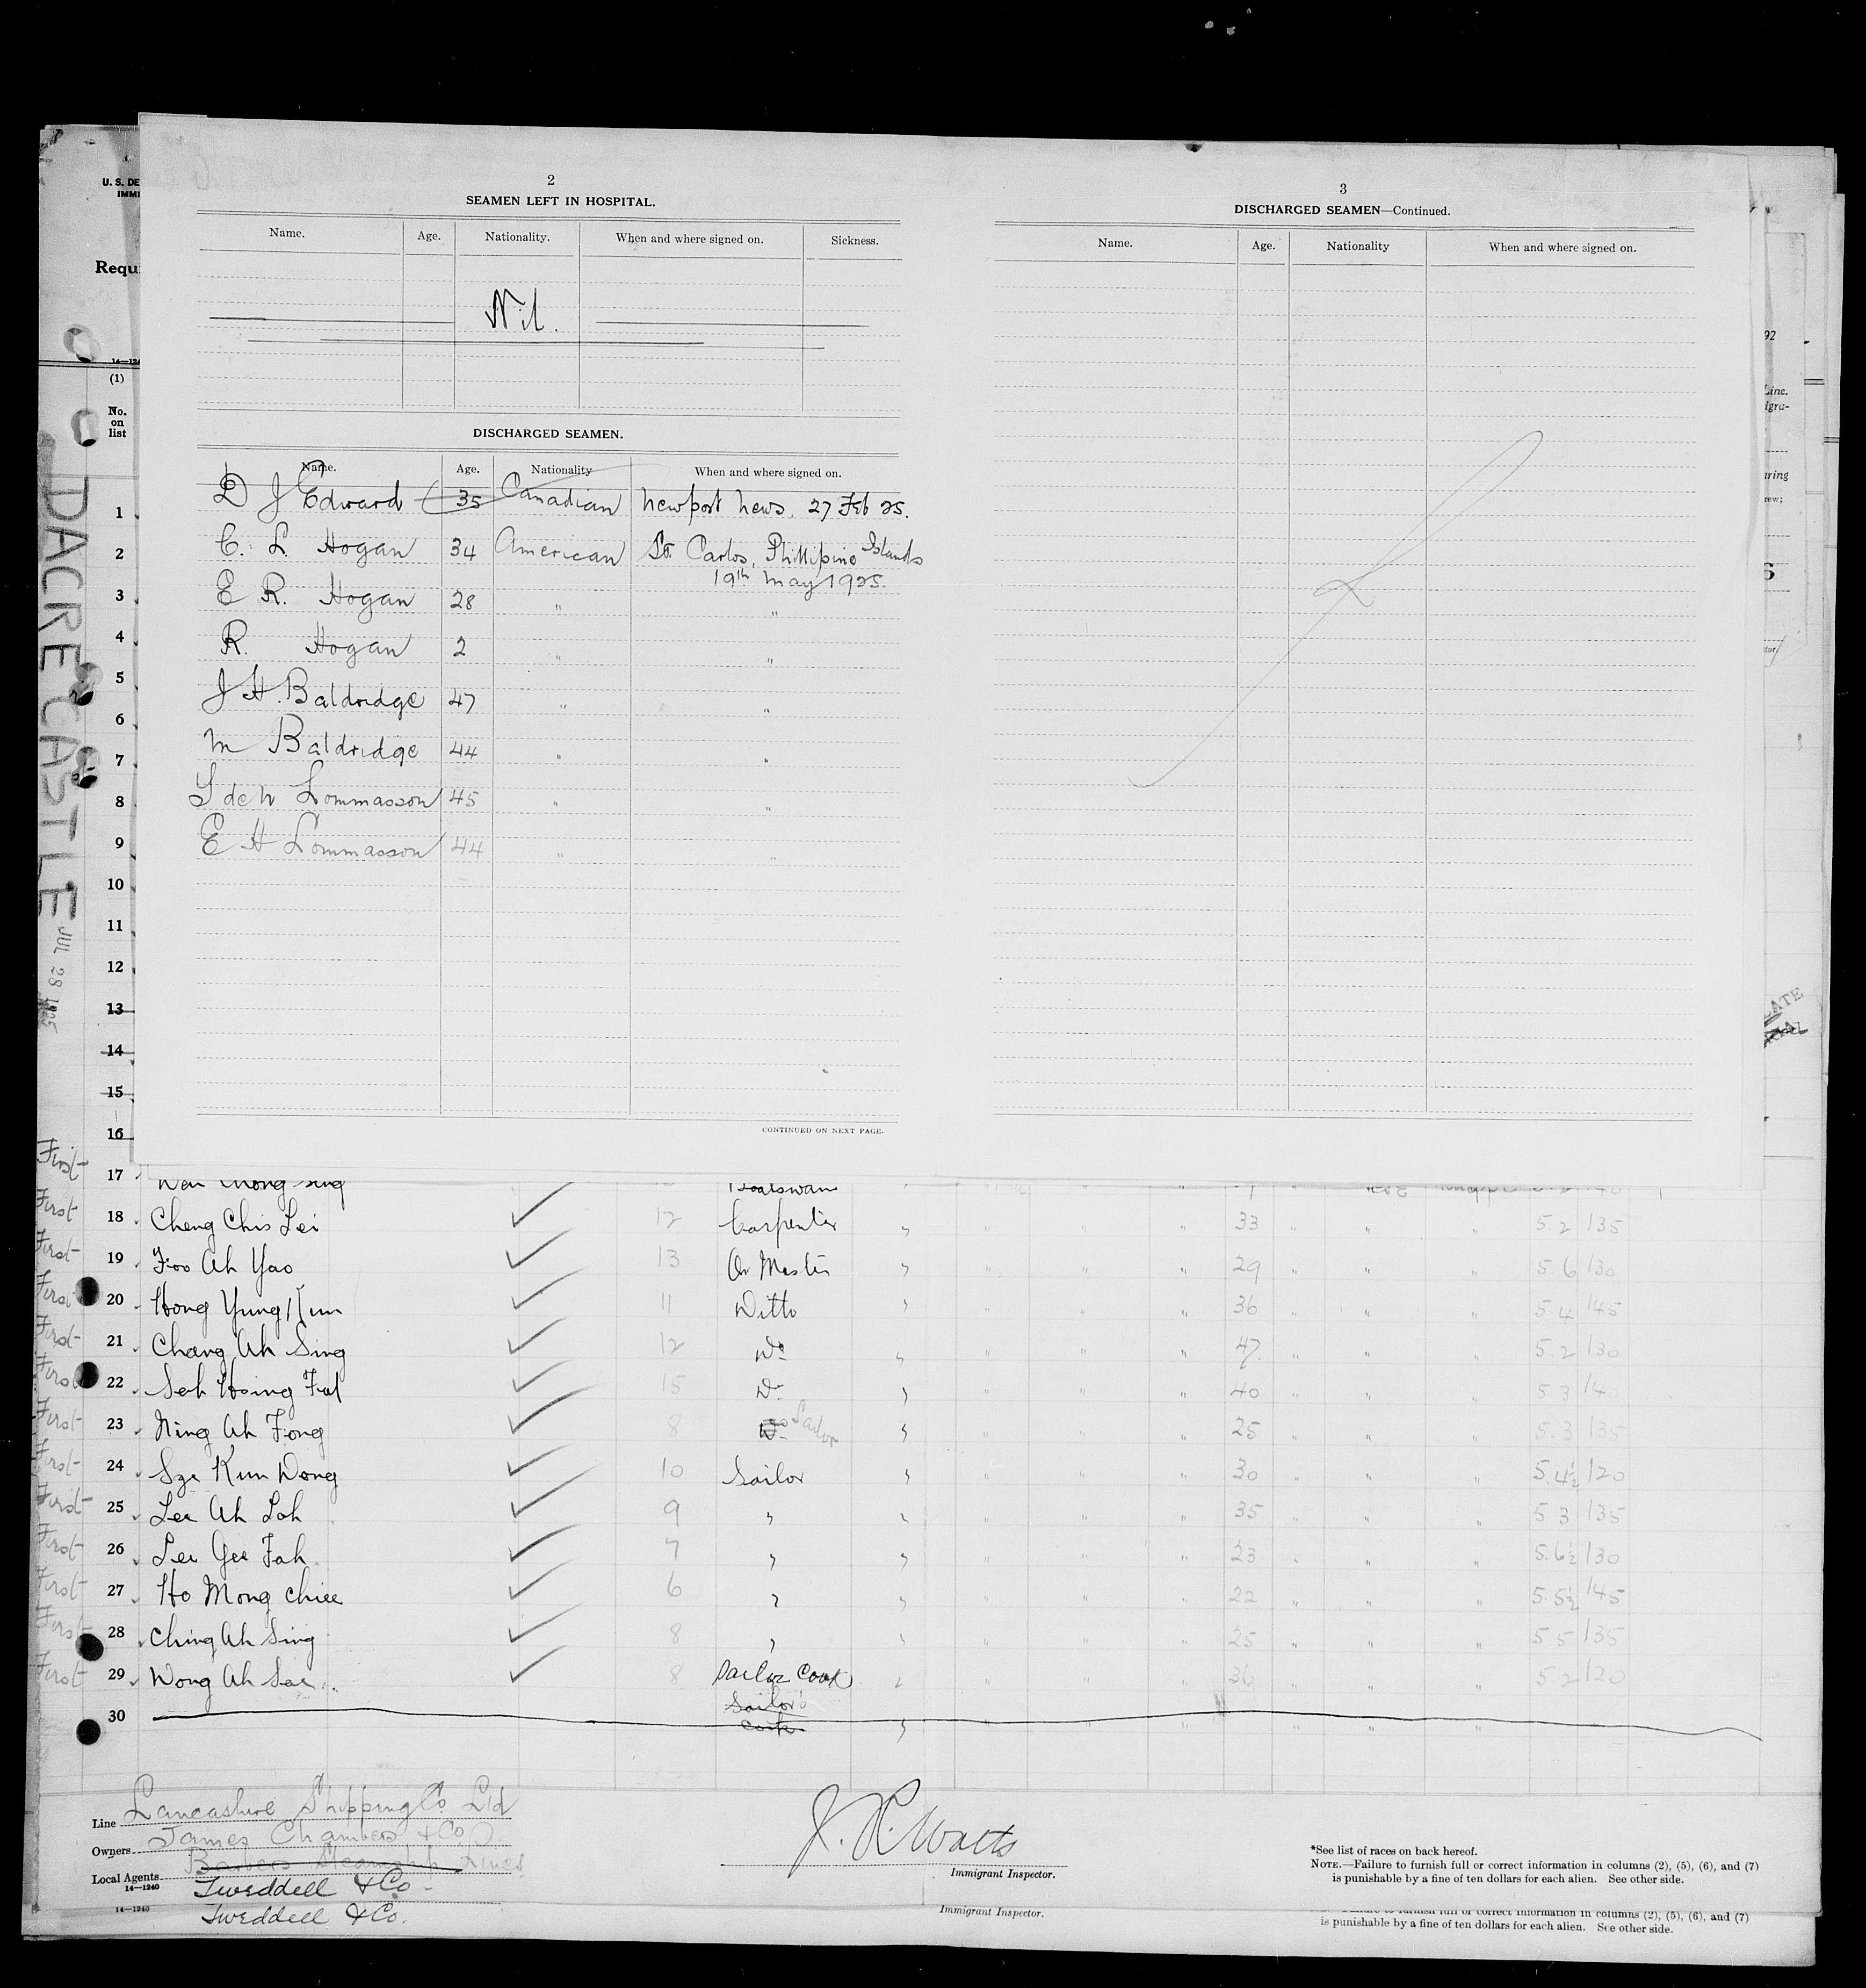 2
SEAMEN LEFT IN HOSPITAL.
Name. Age. Nationality. When and where signed on. Sickness.
Nil.
DISCHARGED SEAMEN.
Name. Age. Nationality When and where signed on.
D J Edward 35 Canadian Newport News. 27 Feb 25.
C. L. Hogan 34 American St. Carlos, Phillipine Islands
19th May 1925.
E R. Hogan 28 " "
R. Hogan 2 " "
J H. Baldridge 47 " "
M Baldridge 44 " "
L de W Lommasson 45 " "
E H Lommasson 44 " "
CONTINUED ON NEXT PAGE.
3
DISCHARGED SEAMEN—Continued.
Name. Age. Nationality When and where signed on.
U. S. DE
IMMI
Requ
14—124
(1)
No.
on
list
DACRE CASTLE JUL 28 1925
1
2
3
4
5
6
7
8
9
10
11
12
13
14
15
16
First 17 Boatswain
First 18 Cheng Chis Lei 12 Carpenter " " " " 33 " " " 5.2 135
First 19 Foo Ah Yao 13 Qr Master " " " " 29 " " " 5.6 130
First 20 Hong Yung Kun 11 Ditto " " " " 36 " " " 5.4 145
First 21 Chang Ah Sing 12 Do " " " " 47 " " " 5.2 130
First 22 Seh Hsing Fat 15 Do " " " " 40 " " " 5 3 140
First 23 Ning Ah Fong 8 Do Sailor " " " " 25 " " " 5.3 135
First 24 Sze Kun Dong 10 Sailor " " " " 30 " " " 5.4½ 120
First 25 Lee Ah Loh 9 " " " " " 35 " " " 5 3 135
First 26 Lee Gee Fah 7 " " " " " 23 " " " 5.6½ 130
First 27 Ho Mong Chiee 6 " " " " " 22 " " " 5.5½ 145
First 28 Ching Ah Sing 8 " " " " " 25 " " " 5 5 135
First 29 Wong Ah Sae 8 Sailor Cook " " " " 36 " " " 5.2 120
30 Sailor's
Cook " " " " " " "
Line Lancashire Shipping Co Ltd
Owners James Chambers & Co.
Local Agents Barbers Steamship Lines
14—1240 Tweddell & Co
14—1240 Tweddell & Co.
J. R. Watts
Immigrant Inspector.
Immigrant Inspector.
*See list of races on back hereof.
NOTE.—Failure to furnish full or correct information in columns (2), (5), (6), and (7)
is punishable by a fine of ten dollars for each alien. See other side.
furnish full or correct information in columns (2), (5), (6), and (7)
is punishable by a fine of ten dollars for each alien. See other side.
92
Line.
igra-
ring
rew;